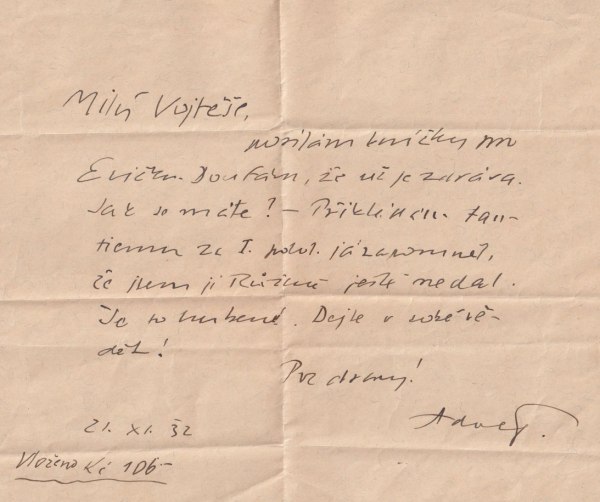 Milý Vojtěše,
posílám knížky pro
Evičku. Doufám, že už je zdráva.
Jak se máte? – Přikládám tan-
tiemu za I. polol. já zapomněl,
že jsem ji Růženě ještě nedal.
Je to hubené. Dejte o sobě vě-
dět!
Pozdravy!
21. XI. 32
Vloženo Kč 106–